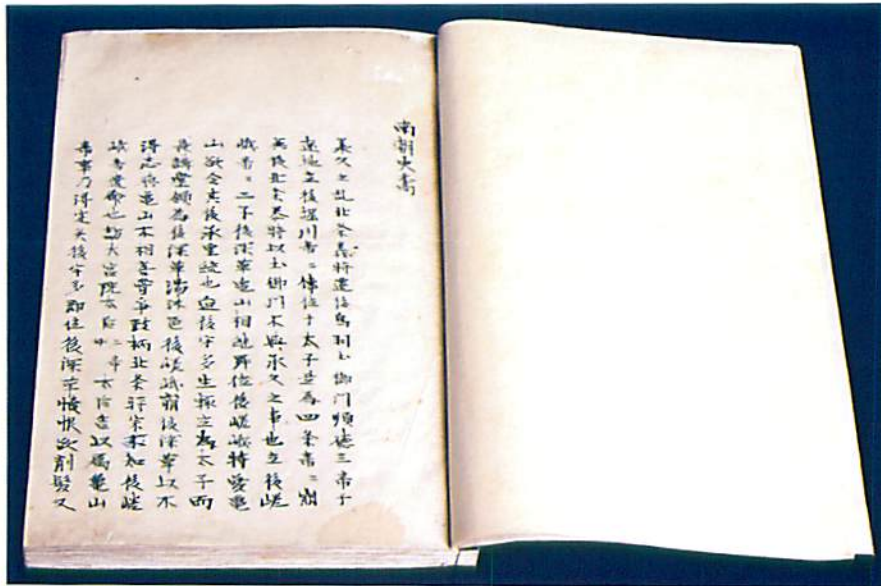 南朝史稾
承久之乱北条義時遷後鳥羽土御門順徳三帝于
遠地立後堀川帝〻傳位于太子是為四条帝〻崩
無後北条泰時以土御門不與承久之事也立後嵯
峨帝〻二子後深草亀山相継即位後嵯峨特愛亀
山欲令其後承皇統也迨後宇多生輙立為太子而
長講堂領為後深草湯沐邑後嵯峨崩後深草以不
得志與亀山不相善曽争政柄北条時宗不知後嵯
峨帝 命也訪大宮院太后 太后告以属亀山
帝事乃得定矣後宇多即位後深草懐恨欲削髪又